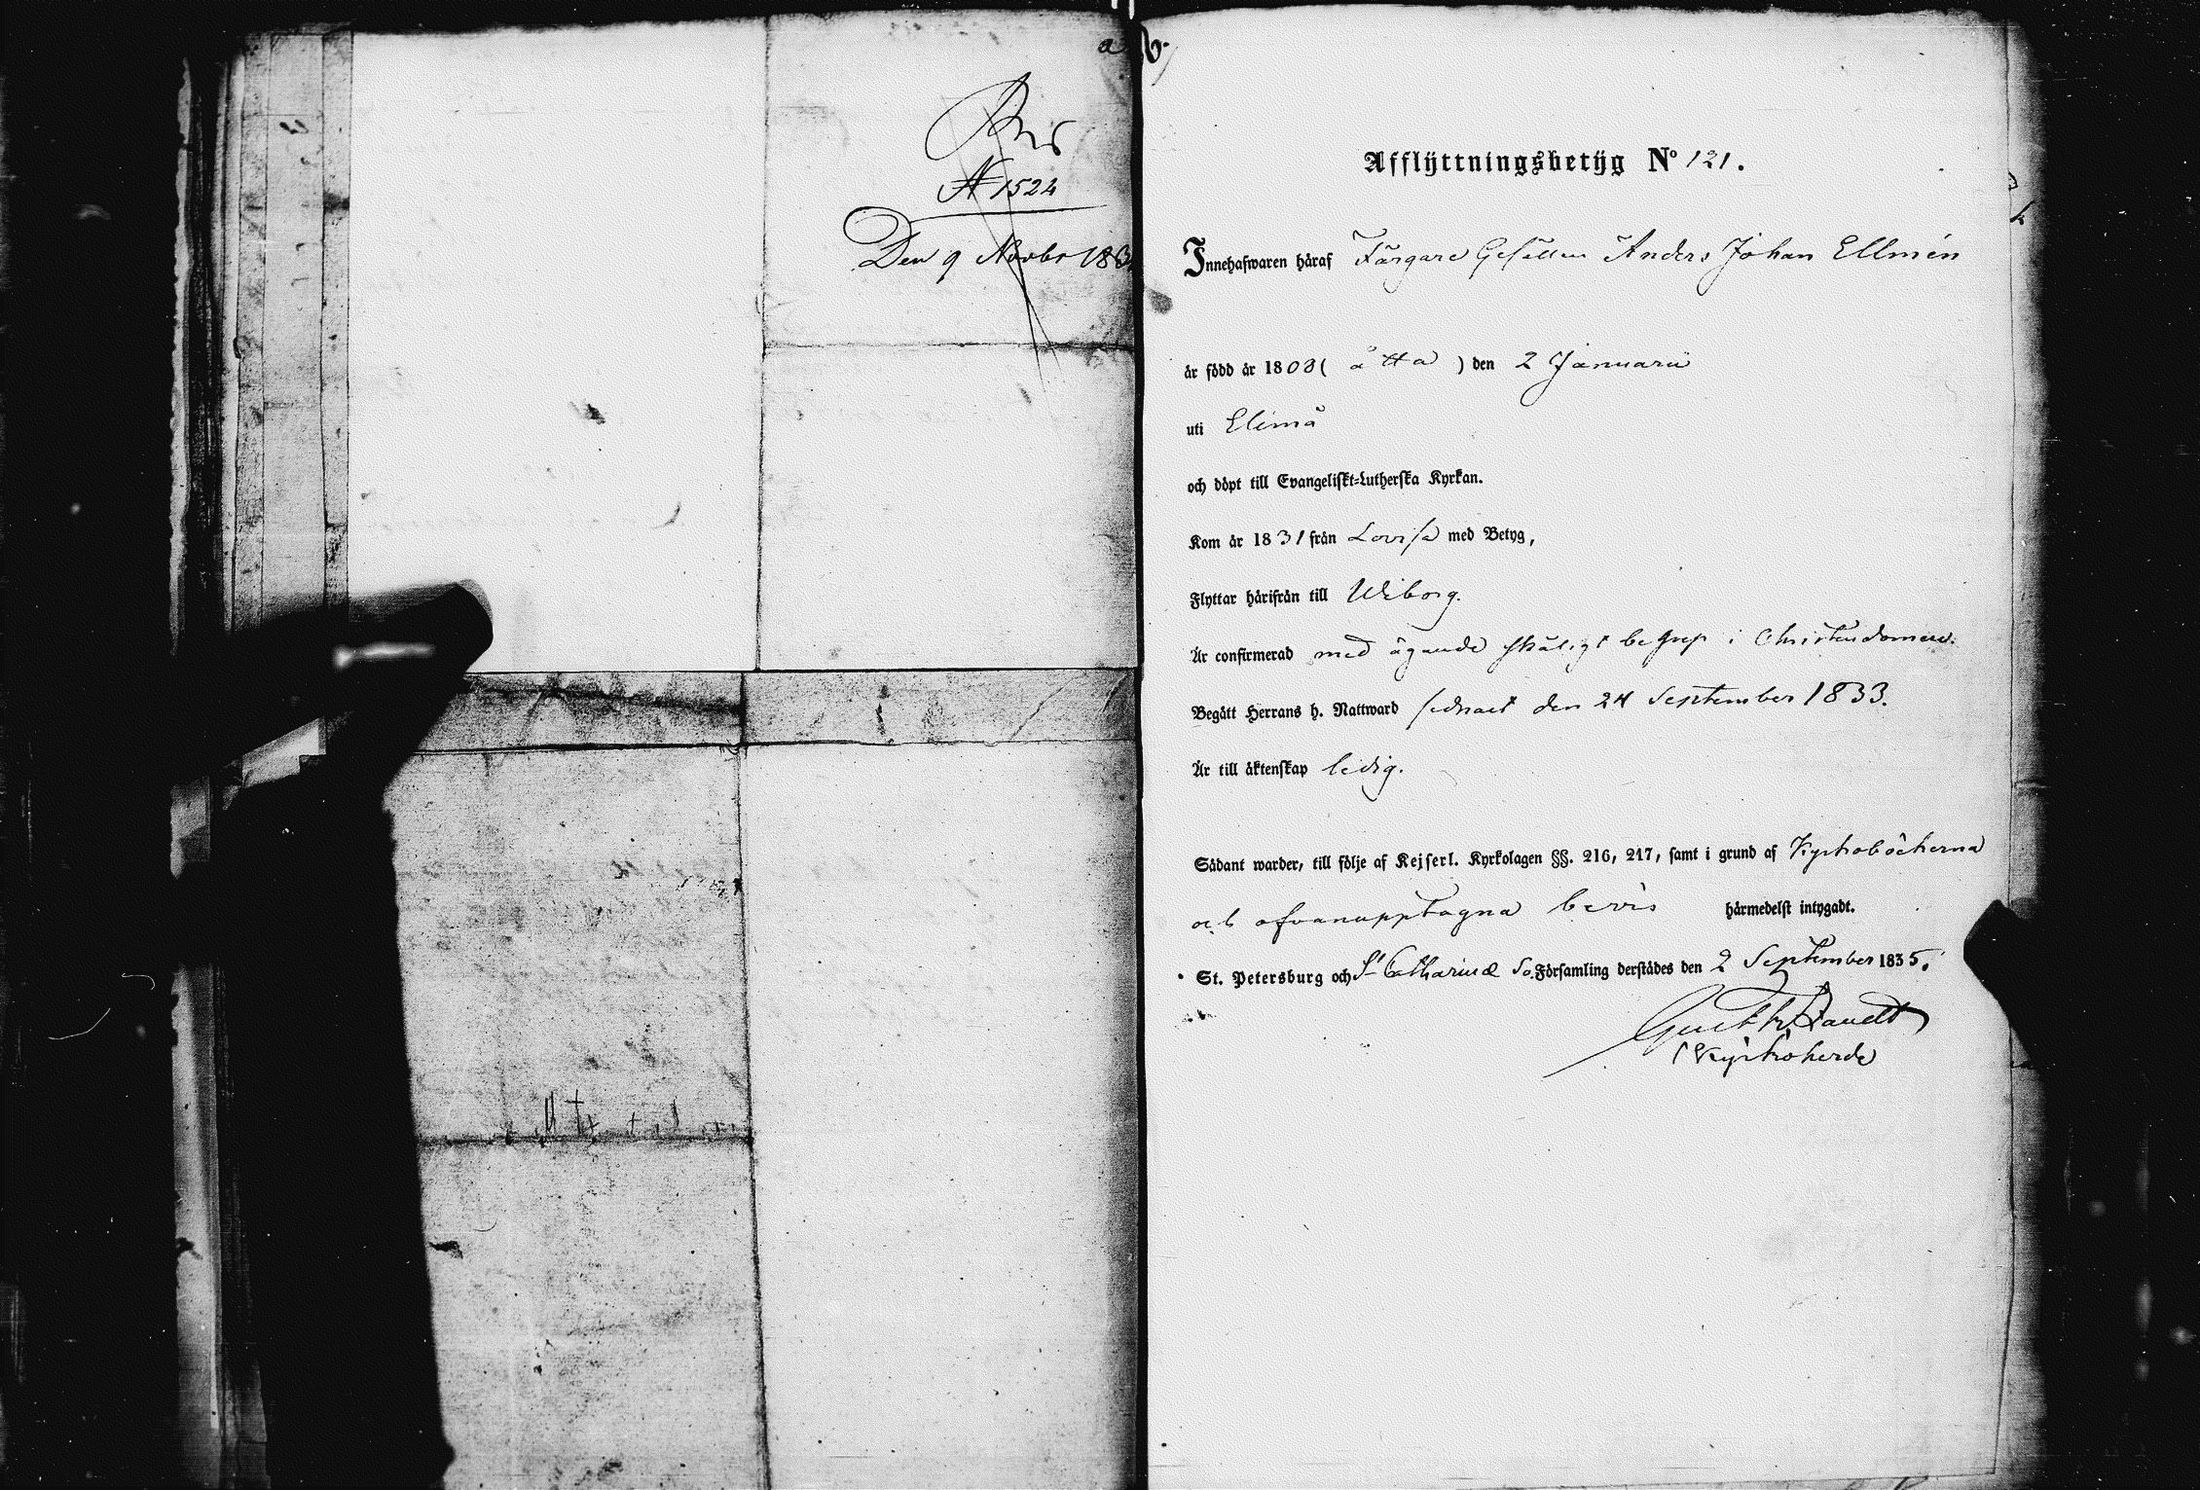 a
N 1524
Den 9 Novbr 183
Afflÿttningsbetÿg No 121.
Innehafwaren håraf Färgare Gesällen Anders Johan Ellmén
år född år 1808 ( åtta ) den 2 Januarii
uti Elimä
och döpt till Evangeliskt-Lutherska Kyrkan.
Kom år 1831 från Lovisa med Betyg,
Flyttar hårifrån till Wiborg.
Är confirmerad med ägande skäligt begrep i Christendomen.
Begått Herrans h. Nattward sednast den 24 September 1833.
Är till åktenskap ledig.
Sådant warder, till följe af Kejserl. Kyrkolagen §§. 216, 217, samt i grund af Kyrkoböckerna
och ofvanupptagna bevis hårmedelst intygadt.
St. Petersburg och St Catharinæ Sv. Församling derstådes den 2 September 1835.
Kyrkoherde